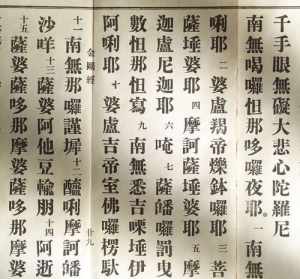 千手眼無礙大悲心陀羅尼
南無喝囉怛那哆囉夜耶 一 南無
唎耶 二 婆盧羯帝爍鉢囉耶 三 菩
薩埵婆耶 四 摩訶薩埵婆耶 五 摩
迦盧尼迦耶 六 唵 七 薩皤囉罰曳
數怛那怛寫 九 南無悉吉㗚埵伊
阿唎耶 十 婆盧吉帝室佛囉楞馱
金剛經 廿九
十一 南無那囉謹墀 十二 醯唎摩訶皤
沙咩 十三 薩婆阿他豆輸朋 十四 阿逝
十五 薩婆薩哆那摩婆薩哆那摩婆